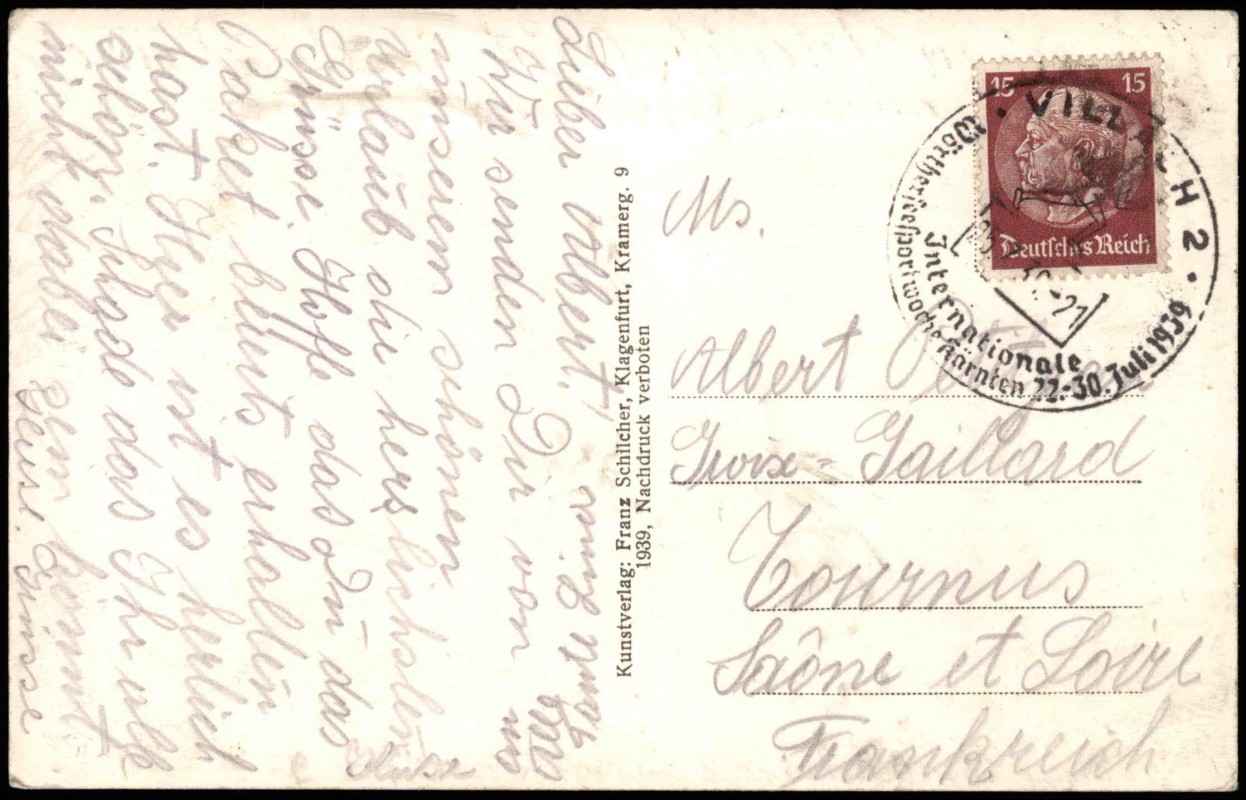 Lieber Albert!
Wir senden Dir von
unserem schönen
Urlaub die herzlichsten
Grüsse. Hoffe das Du das
Paket bereits erhalten
hast. Hier ist es herlich
schön. Schade das Ihr alle
nicht dabei
Grüsse
Tante
Alle
Kunstverlag: Franz Schilcher, Klagenfurt, Kramerg. 9
1939, Nachdruck verboten
15 15
Deutsches Reich
VILLACH 2
Internationale
Wörthersee Sportwoche Kärnten 22.-30. Juli 1939
Ms.
Albert
Troix = Gaillard
Tournus
Saône et Loire
Frankreich